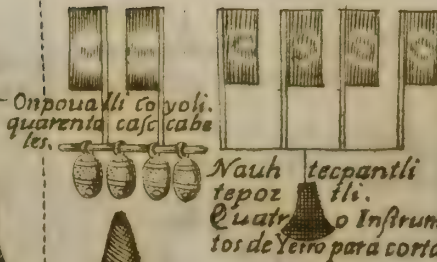 Onpoualli coyoli.
quarenta casccabe
les.
Nauh tecpantli
tepoz tli.
Quatro Instrum
tos de Yerro para corta